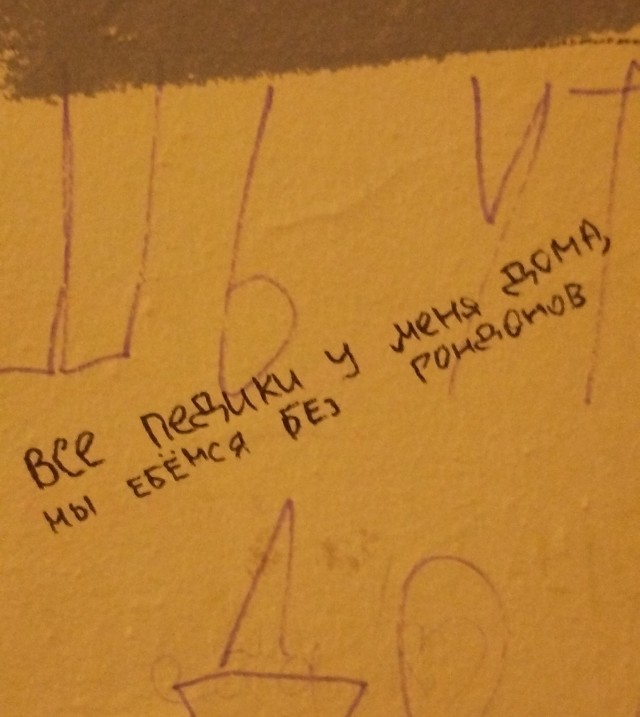 Ь УТ
ВСЕ ПЕДИКИ У МЕНЯ ДОМА,
МЫ ЕБЁМСЯ БЕЗ ГОНДОНОВ